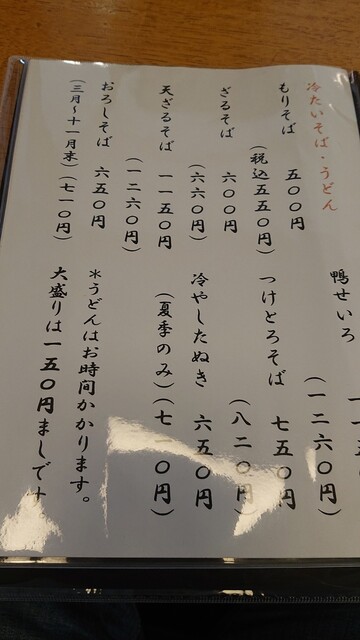 冷たいそば・うどん
もりそば　五〇〇円
（税込五五〇円）
ざるそば　六〇〇円
（六六〇円）
天ざるそば　一一五〇円
（一二六〇円）
おろしそば　六五〇円
（三月～十一月末）（七一〇円）
鴨せいろ　一一五
（一二六〇円）
つけとろそば　七五〇円
（八二〇円）
冷やしたぬき　六五〇円
（夏季のみ）（七一〇円）
＊うどんはお時間かかります。
大盛りは一五〇円ましです